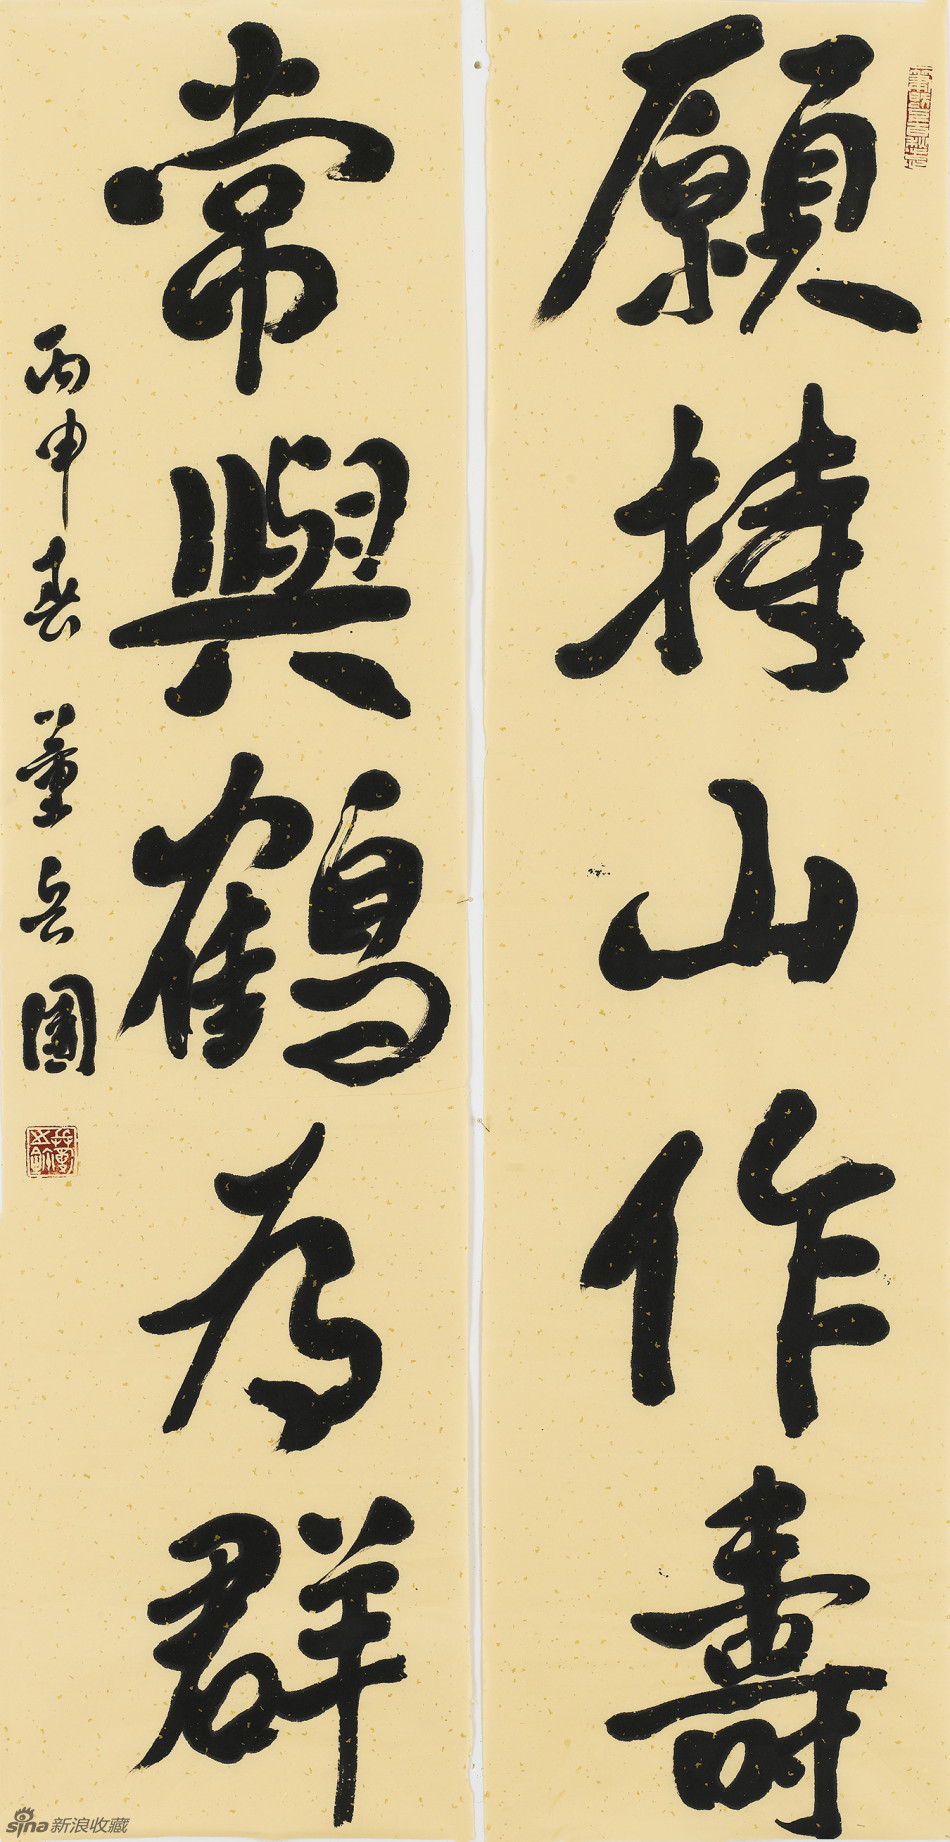 願持山作壽
常與鶴為群
丙申春 董岳圃
sina新浪收藏